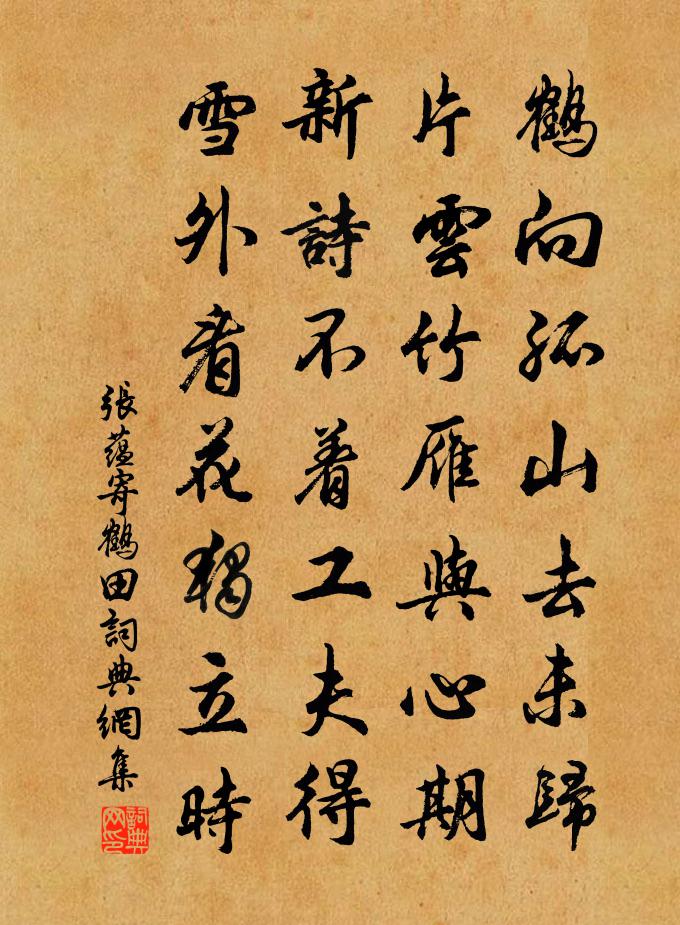 鶴向孤山去未歸
片雲竹雁與心期
新詩不着工夫得
雪外看花獨立時
張蘊寄鶴田詞典網集
詞典网印